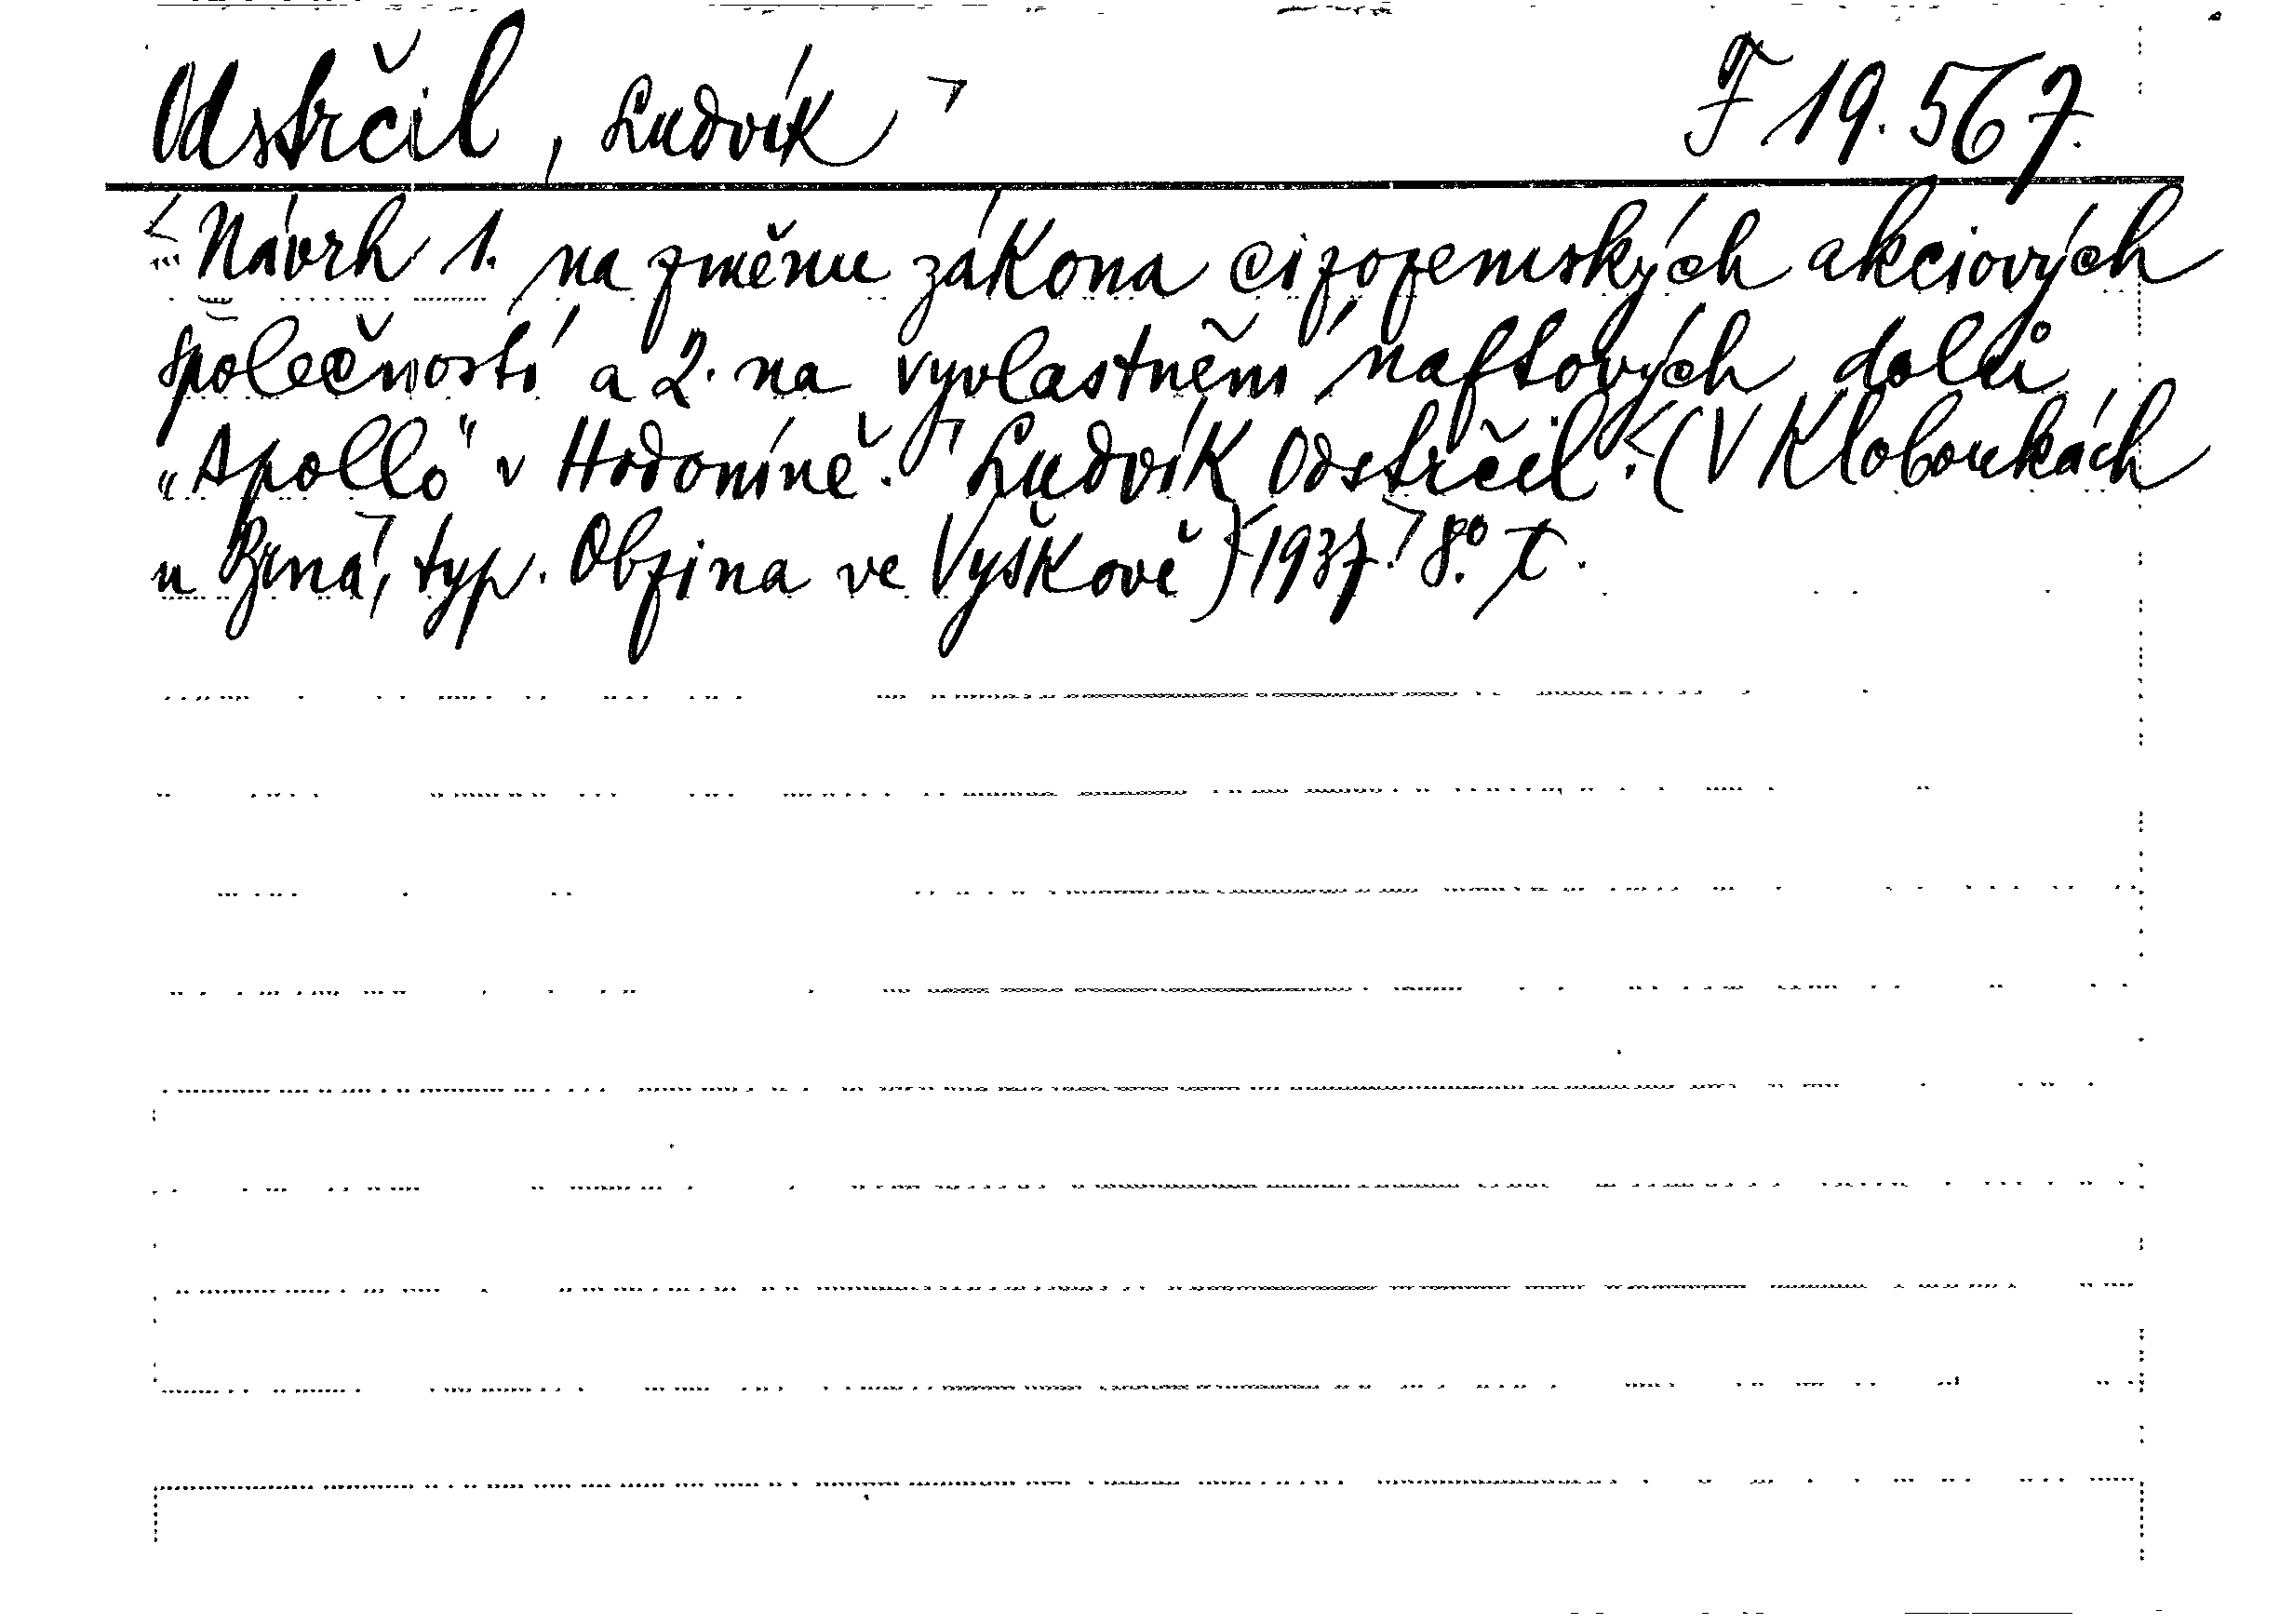 Odstrčil, Ludvík ⌝ F 19.567.
< Návrh 1. na změnu zákona cizozemských akciových
společností a 2. na vyvlastnění naftových dolů
„Apollo“ v Hodoníně. ⌝ Ludvík Odstrčil. < (V Kloboukách
u Brna ⌝, typ. Obzina ve Vyškově) < 1937. ⌝ 8.° T.